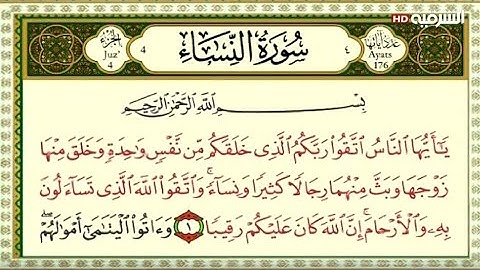 الشرقية HD
الجزء
Juz'
4
4
سُورَةُ النِّسَاءِ
٤
عدد آياتها
Ayats
176
بِسْمِ اللَّهِ الرَّحْمَٰنِ الرَّحِيمِ
يَٰٓأَيُّهَا النَّاسُ اتَّقُوا رَبَّكُمُ الَّذِى خَلَقَكُم مِّن نَّفْسٍ وَٰحِدَةٍ وَخَلَقَ مِنْهَا
زَوْجَهَا وَبَثَّ مِنْهُمَا رِجَالًا كَثِيرًا وَنِسَآءً ۚ وَاتَّقُوا اللَّهَ الَّذِى تَسَآءَلُونَ
بِهِۦ وَالْأَرْحَامَ ۚ إِنَّ اللَّهَ كَانَ عَلَيْكُمْ رَقِيبًا ١ وَءَاتُوا الْيَتَٰمَىٰٓ أَمْوَٰلَهُمْ ۖ